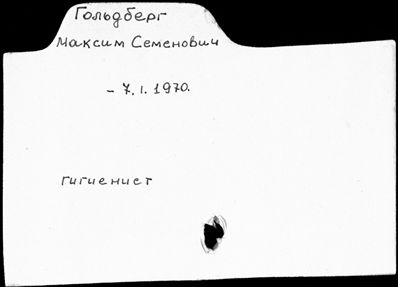 Гольдберг
Максим Семенович
- 7.I.1970.
гигиенист